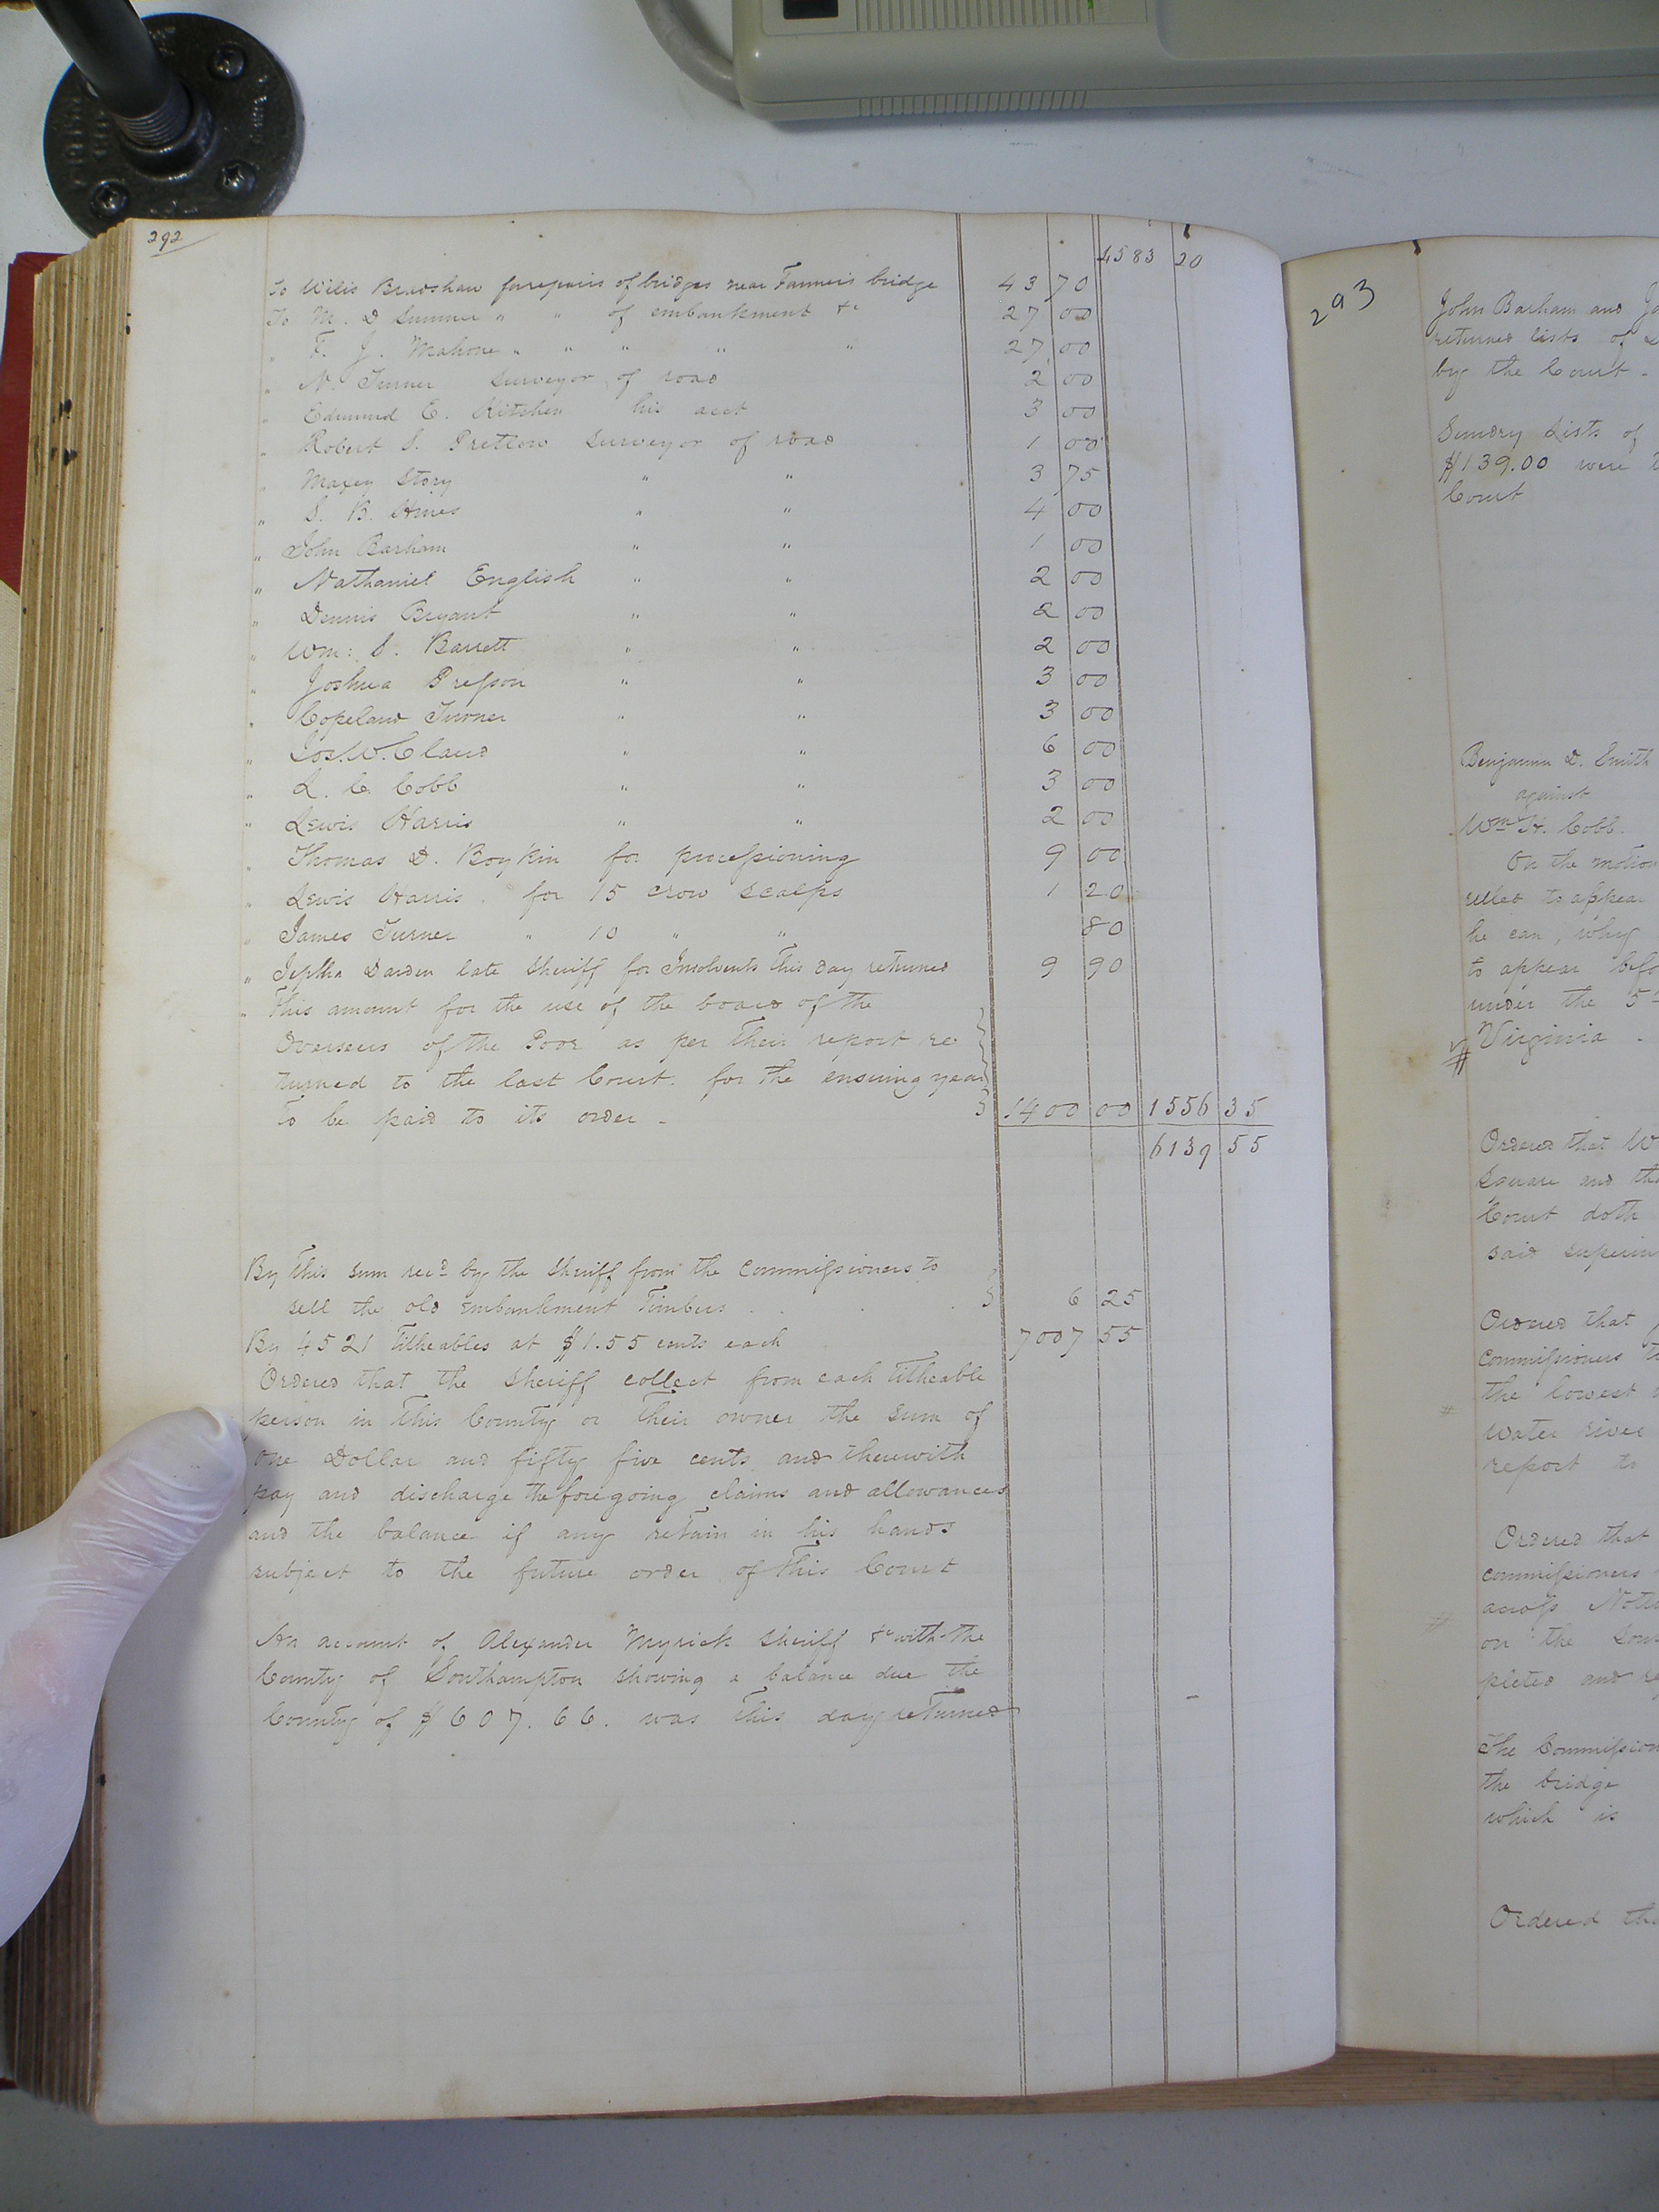 292
4583 20
To Wilis Bradshaw for repairs of bridges near Farmers bridge 43 70
To M. D Sumner " " of embankment &c 27 00
" F. J. Mahone " " " " " 27 00
" N. Turner Surveyor of road 2 00
" Edmund E. Kitchen his acct 3 00
" Robert S. Pretlow Surveyor of road 1 00
" Maxey Story " " 3 75
" S. B. Hines " " 4 00
" John Barham " " 1 00
" Nathaniel English " " 2 00
" Dennis Bryant " " 2 00
" Wm: S. Barrett " " 2 00
" Joshua Presson " " 3 00
" Copeland Turner " " 3 00
" Jos. W. Claud " " 6 00
" L. C. Cobb " " 3 00
" Lewis Harris " " 2 00
" Thomas D. Boykin for processioning 9 00
" Lewis Harris for 15 crow scalps 1 20
" James Turner " 10 " " 80
" Jeptha Darden late Sheriff for Insolvents this day returned 9 90
" This amount for the use of the board of the
Overseers of the Poor as per their report re
turned to the last Court. for the ensuing year
to be paid to its order - 1400 00 1556 35
6139 55
By this sum recd by the Sheriff from the Commissioners to
sell the old embankment Timbers . . . 6 25
By 4521 titheables at $1.55 cents each 7007 55
Ordered that the Sheriff collect from each titheable
person in this County or their owner the sum of
One Dollar and fifty five cents and therewith
pay and discharge the foregoing claims and allowances
and the balance if any retain in his hands
subject to the future order of this Court
An account of Alexander Myrick Sheriff &c with the
County of Southampton showing a balance due the
County of $607.66. was this day returned
293
John Barham and
returned lists of
by the Court -
Sundry Lists of
$139.00 were
Court
Benjamin D. Smith
against
Wm H. Cobb.
On the motion
ruled to appear
he can, why
to appear
under the
Virginia -
Ordered that
Square and
Court doth
said
Ordered that
Commissioners
the lowest
Water river
report to
Ordered that
commissioners
across
on the
pleted and
The
the bridge
which is
Ordered